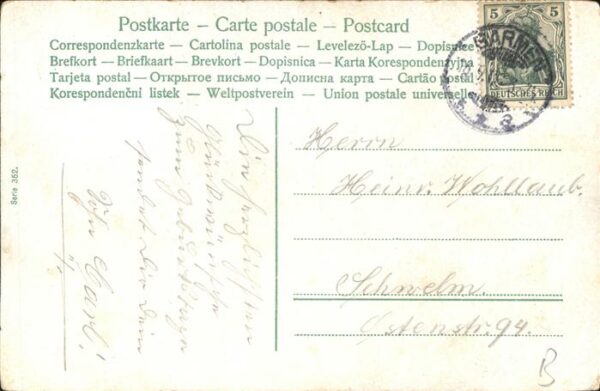 Postkarte – Carte postale – Postcard
Correspondenzkarte – Cartolina postale – Levelező-Lap – Dopisnice
Brefkort – Briefkaart – Brevkort – Dopisnica – Karta Korespondencyjna
Tarjeta postal – Открытое письмо – Дописна карта – Cartão postal
Korespondenční listek – Weltpostverein – Union postale universelle
5 5
DEUTSCHES REICH
BARMEN
Serie 352.
Die herzlichsten
Glückwünsche
zum Geburtstage
sendet Dir Dein
Carl!
Herrn
Heinr. Wohllaub.
Schwelm.
Ostenstr. 94.
B